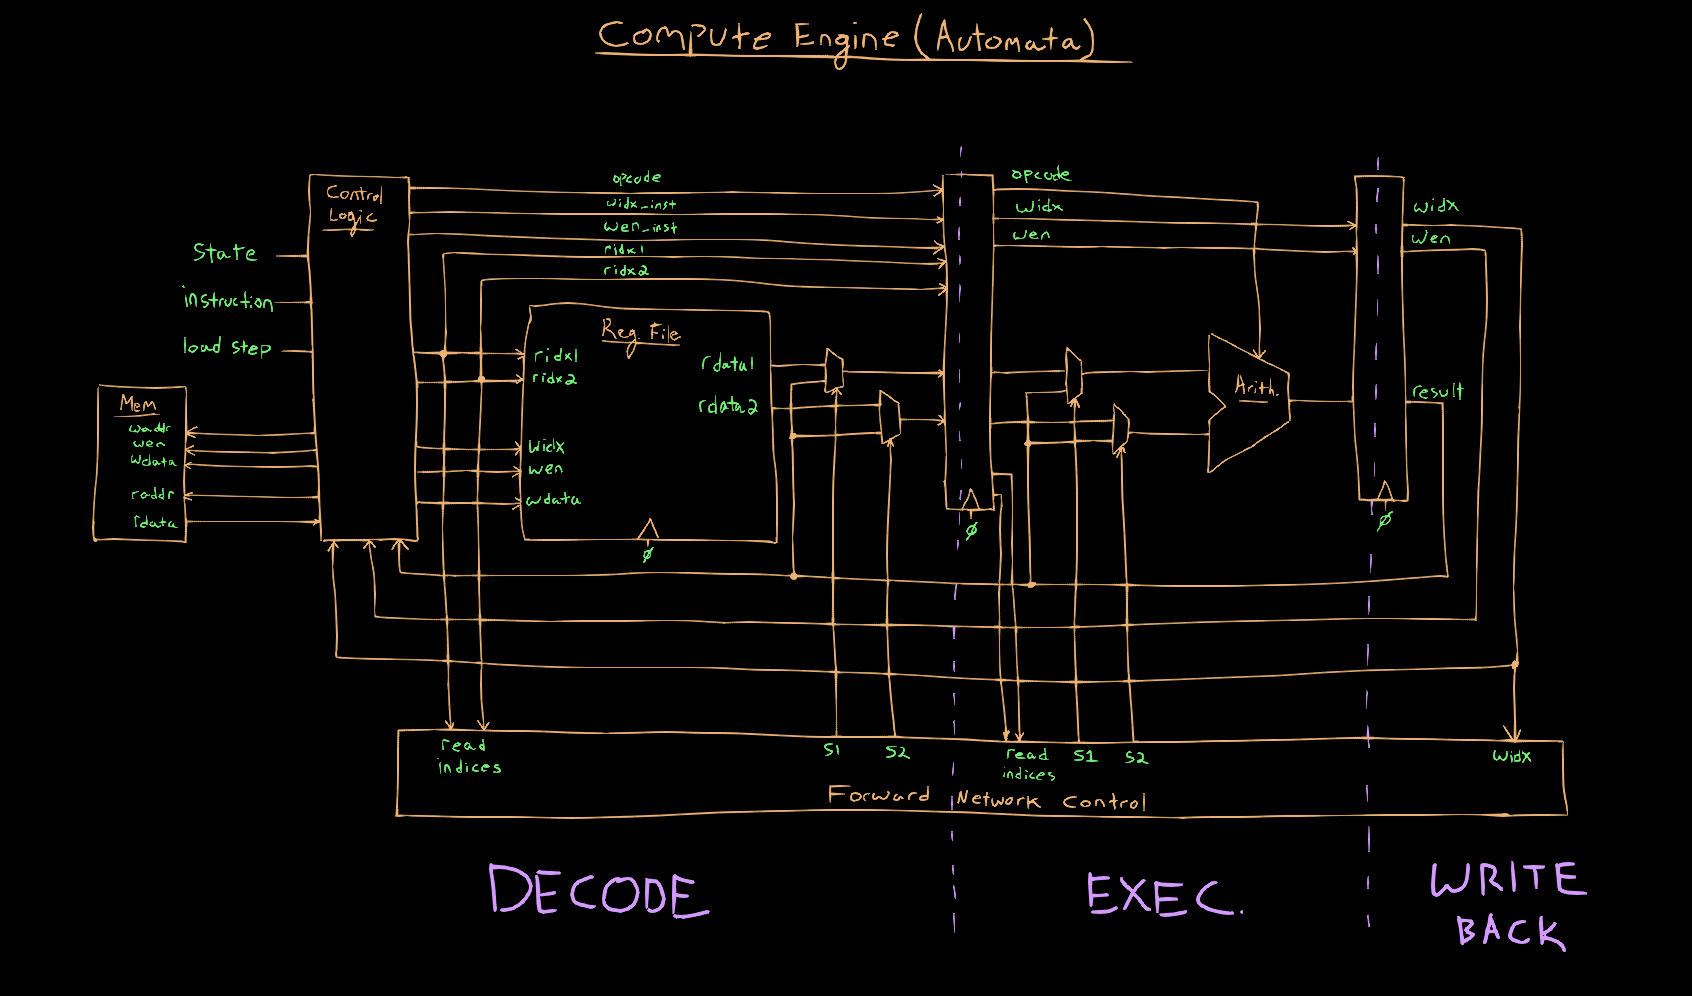 Compute Engine (Automata)
Control
Logic
State
instruction
load step
Mem
waddr
wen
wdata
raddr
rdata
opcode
widx_inst
wen_inst
ridx1
ridx2
Reg. File
ridx1
ridx2
widx
wen
wdata
rdata1
rdata2
ø
opcode
widx
wen
ø
Arith.
widx
wen
result
ø
read
indices
S1
S2
read
indices
S1
S2
widx
Forward Network Control
DECODE
EXEC.
WRITE
BACK